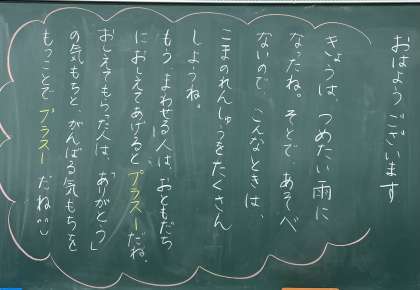 おはようございます
きょうは、つめたい雨に
なったね。そとで あそべ
ないので、こんなときは、
こまのれんしゅうをたくさん
しようね。
もう まわせる人は、おともだち
におしえてあげるとプラス一だね。
おしえてもらった人は、「ありがとう」
の気もちと、がんばる気もちを
もつことでプラス一だね